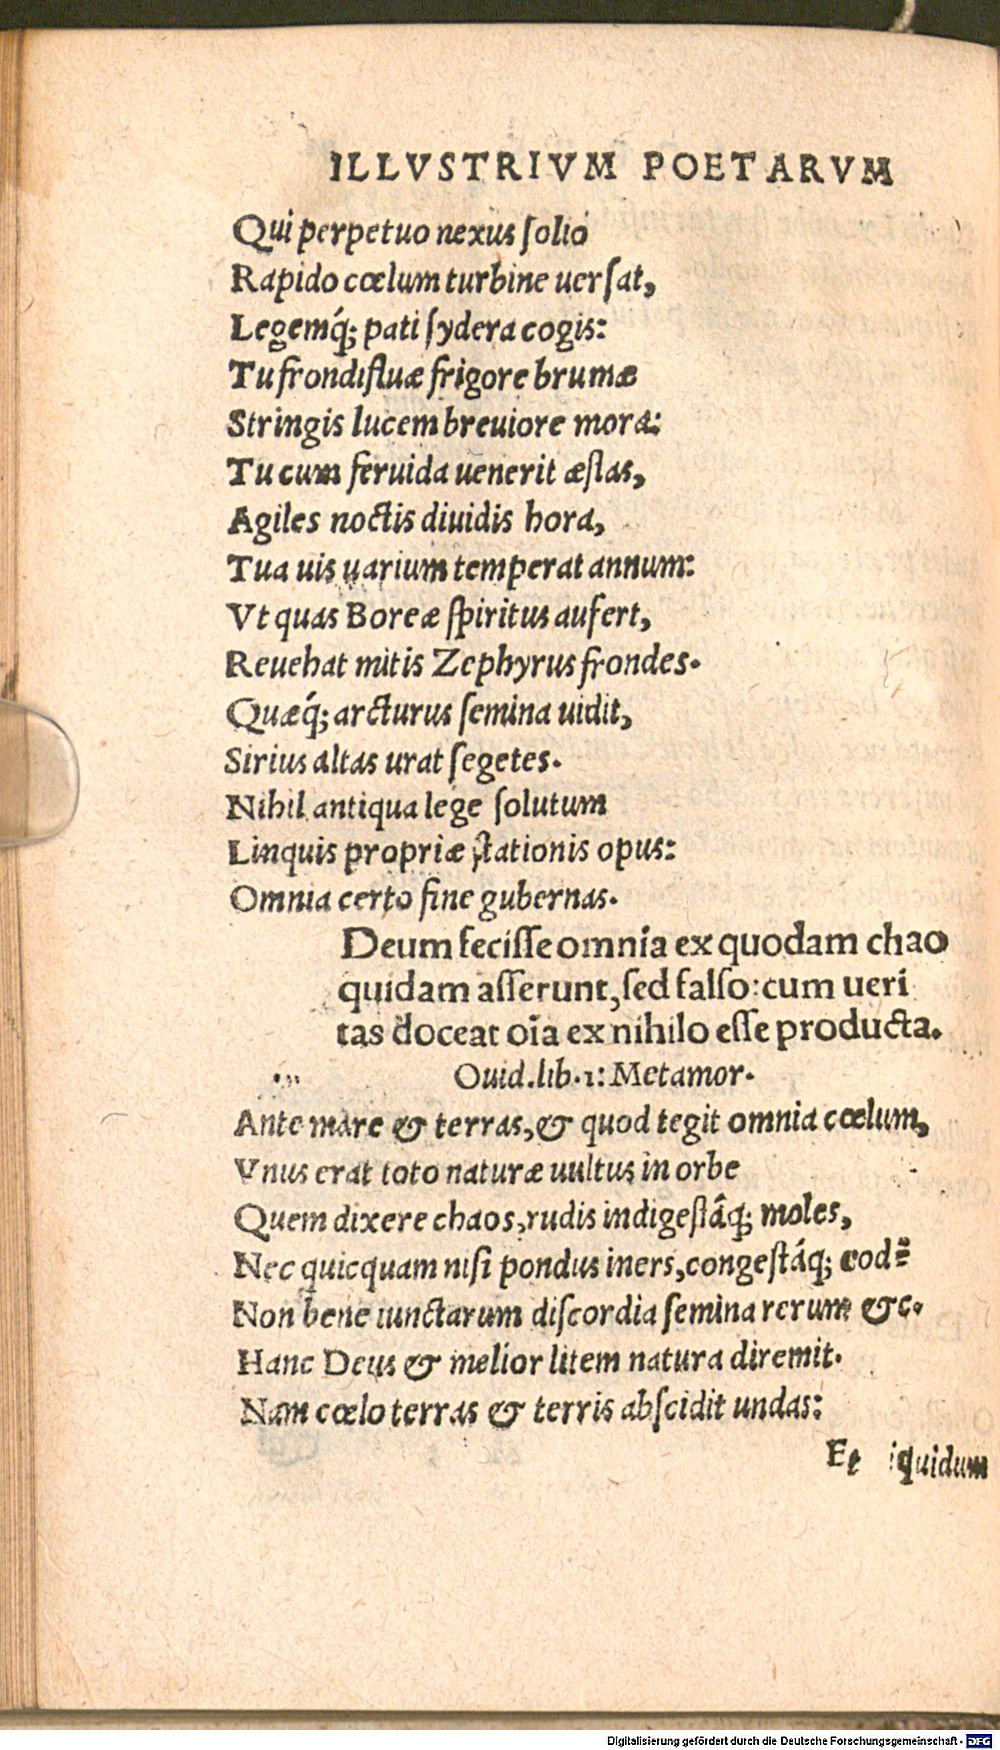 ILLVSTRIVM POETARVM
Qui perpetuo nexus solio
Rapido cœlum turbine uersat,
Legemq́; pati sydera cogis:
Tu frondifluæ frigore brumæ
Stringis lucem breuiore mora:
Tu cum feruida uenerit æstas,
Agiles noctis diuidis hora,
Tua uis uarium temperat annum:
Vt quas Boreæ spiritus aufert,
Reuehat mitis Zephyrus frondes.
Quæq́; arcturus semina uidit,
Sirius altas urat segetes.
Nihil antiqua lege solutum
Linquis propriæ stationis opus:
Omnia certo fine gubernas.
Deum fecisse omnia ex quodam chao
quidam asserunt, sed falso: cum ueri
tas doceat oīa ex nihilo esse producta.
Ouid. lib. 1: Metamor.
Ante mare & terras, & quod tegit omnia cœlum,
Vnus erat toto naturæ uultus in orbe
Quem dixere chaos, rudis indigestáq; moles,
Nec quicquam nisi pondus iners, congestáq; eodē
Non bene iunctarum discordia semina rerum &c.
Hanc Deus & melior litem natura diremit.
Nam cœlo terras & terris abscidit undas:
Et iquidum
Digitalisierung gefördert durch die Deutsche Forschungsgemeinschaft - DFG